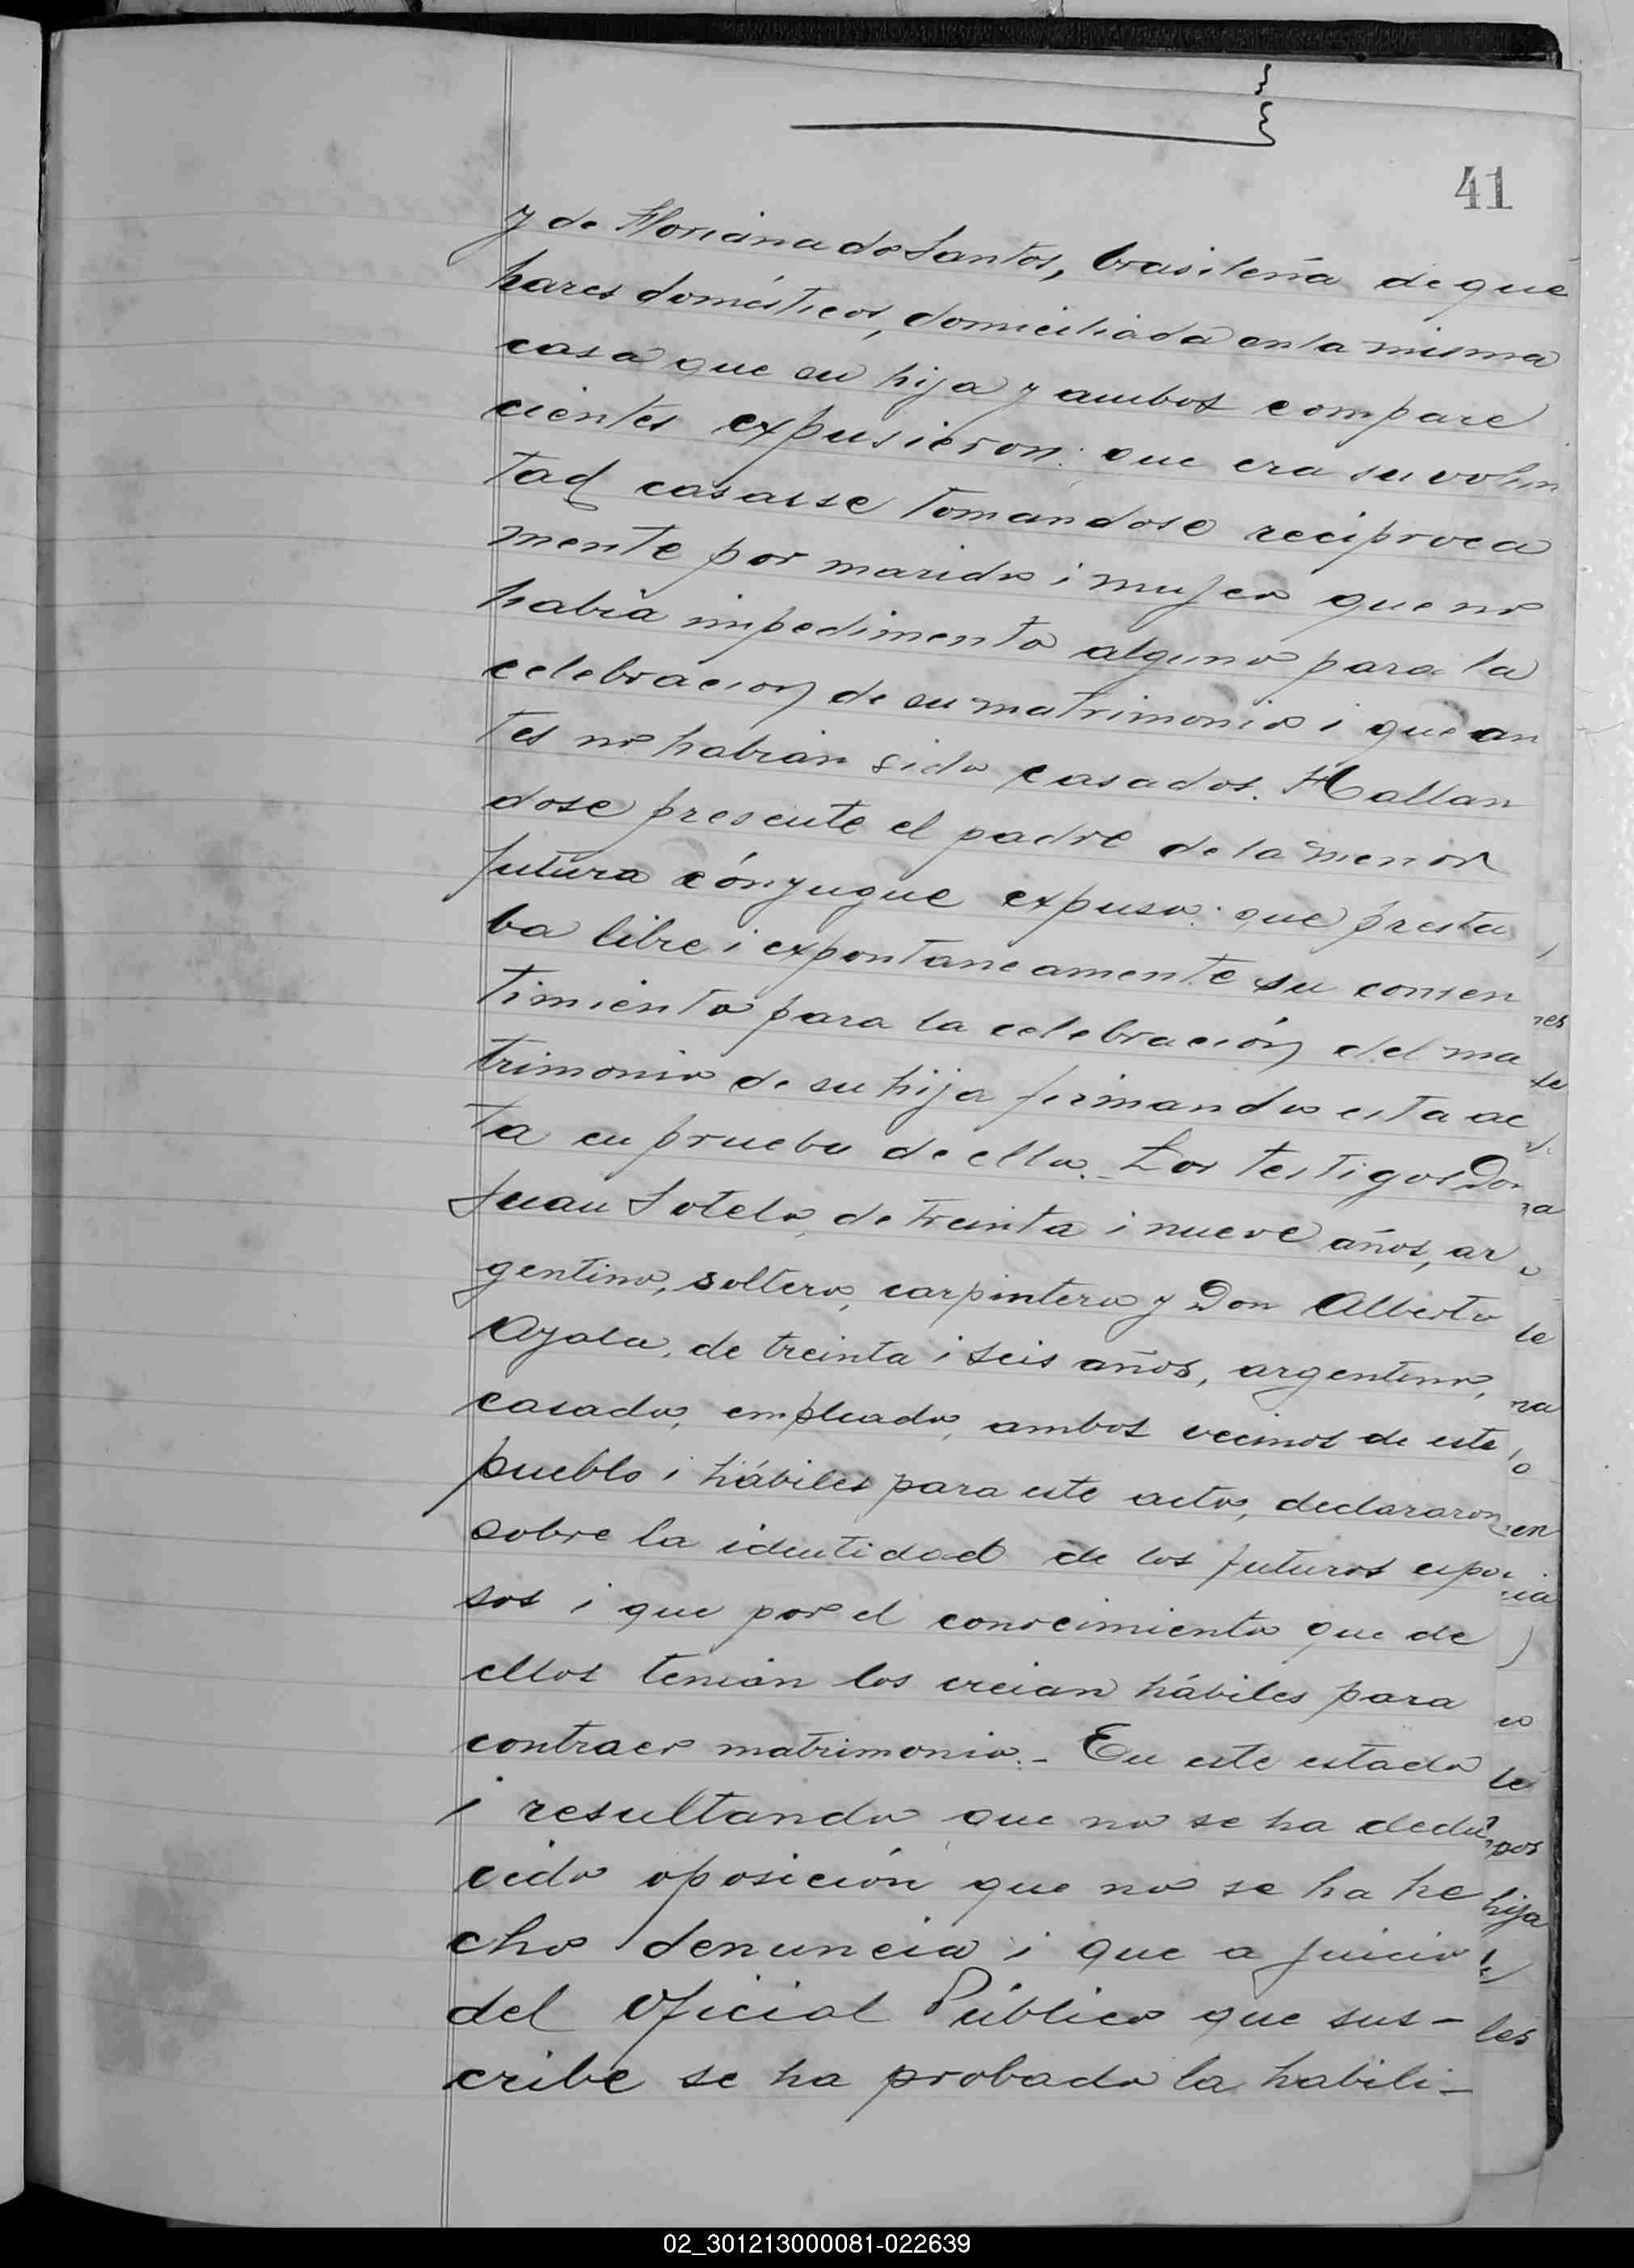 41
y de Floriana do Santos, brasileña de que
hares domésticos, domiciliada en la misma
casa que su hija y ambos compare
cientes expusieron: que era su volun
tad casarse tomandose reciproca
mente por marido i mujer que no
habia impedimento alguno para la
celebracion de su matrimonio i que an
tes no habian sido casados. Hallan
dose presente el padre de la menor
futura cónyugue expuso: que presta
ba libre i expontaneamente su consen
timiento para la celebración del ma
trimonio de su hija firmando esta ac
ta en prueba de ello.- Los testigos Don
Juan Sotelo, de treinta i nueve años, ar
gentino, soltero, carpintero y Don Alberto
Ayala, de treinta i seis años, argentino,
casado, empleado, ambos vecinos de este
pueblo i hábiles para este acto, declararon
sobre la identidad de los futuros espo
sos i que por el conocimiento que de
ellos tenian los creian hábiles para
contraer matrimonio.- En este estado
i resultando que no se ha dedu
cido oposición que no se ha he
cho denuncia i que a juicio
del Oficial Público que sus-
cribe se ha probado la habili-
02_301213000081-022639